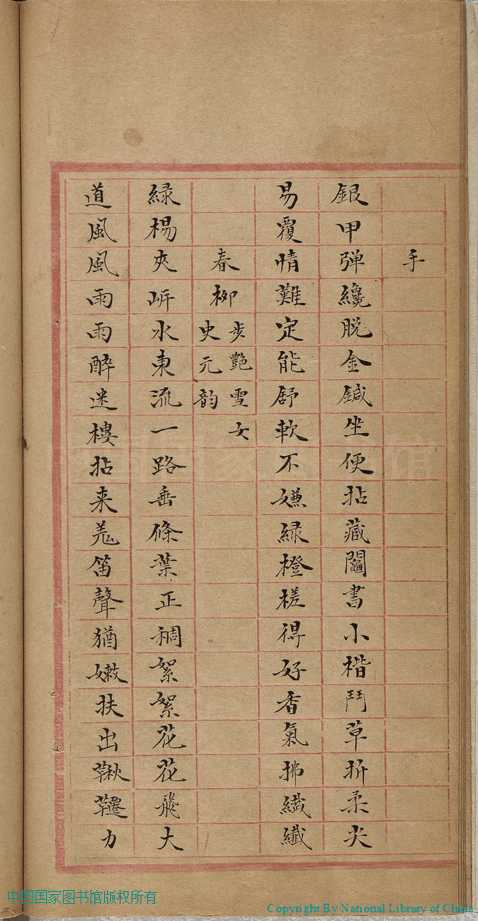 手
銀甲弹纔脫金鍼坐便拈藏鬮書小楷鬥草折柔尖
易覆情難定能舒軟不嫌綠橙槎得好香氣拂纖纖
春柳步艷雪女史元韵
綠楊夾岍水東流一路垂條葉正稠絮絮花花飛大
道風風雨雨醉迷樓拈来羗笛聲猶嫩扶出鞦韆力
中国国家图书馆版权所有
Copyright By National Library of China